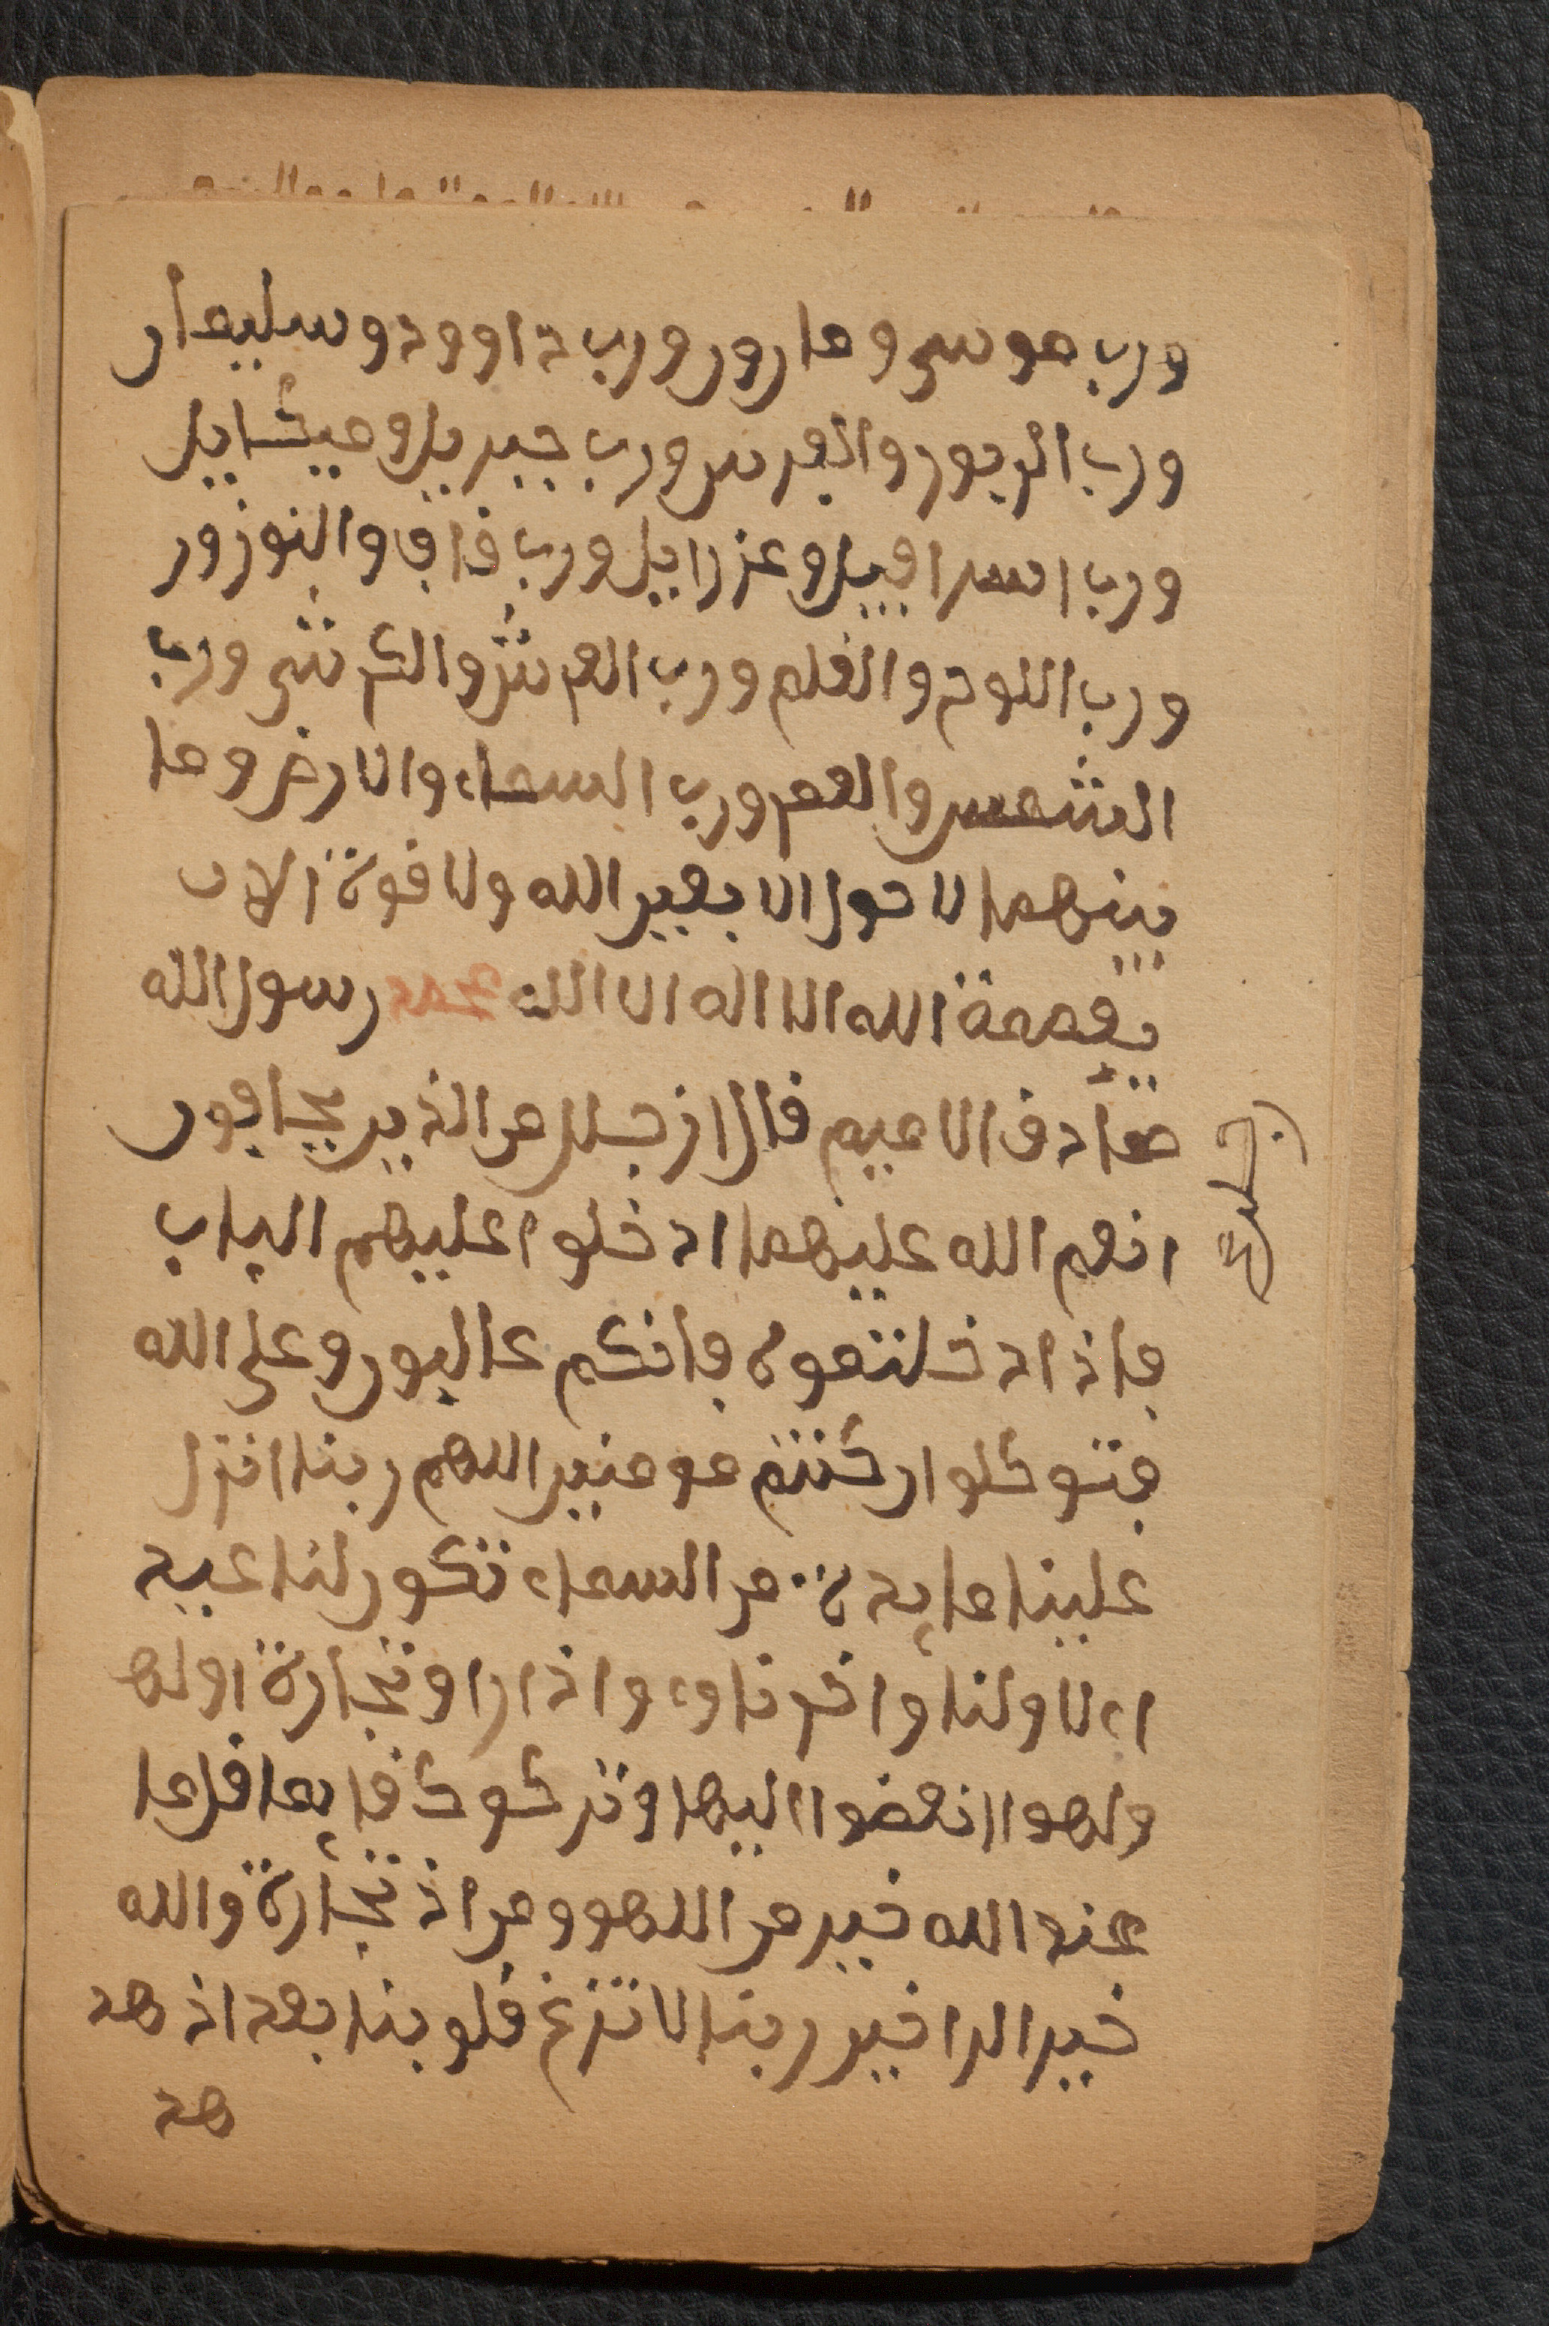 ورب موسى وهارون ورب داوود وسليمان
ورب الزبور والفرس ورب جبريل وميكايل
ورب اسرافيل وعزرايل ورب قاف والنوزور
ورب اللوح والقلم ورب العرش والكرشى ورب
الشمس والقمر ورب السماء والارض وما
بينهما لا حول الا بغير الله ولا قوة الا ب
بعصمة الله الا اله الا الله محمد رسول الله
صادق الاميم قال ازجلن من الذين يخافون
انعم الله عليهما ادخلوا عليهم الباب
فاذا دخلتموه فانكم غالبون وعلى الله
فتوكلوا ان كنتم مومنين اللهم ربنا انزل
علينا مايدة من السماء تكون لنا عيد
اء لاولنا واخرنا وء واذا راو تجارة اولها
ولهوا انفضوا اليها وتركوك قايما قل ما
عند الله خير من اللهو ومن اذ تجارة والله
خير الرا خير ربنا لا تزغ قلوبنا بعد اذ هد
هد